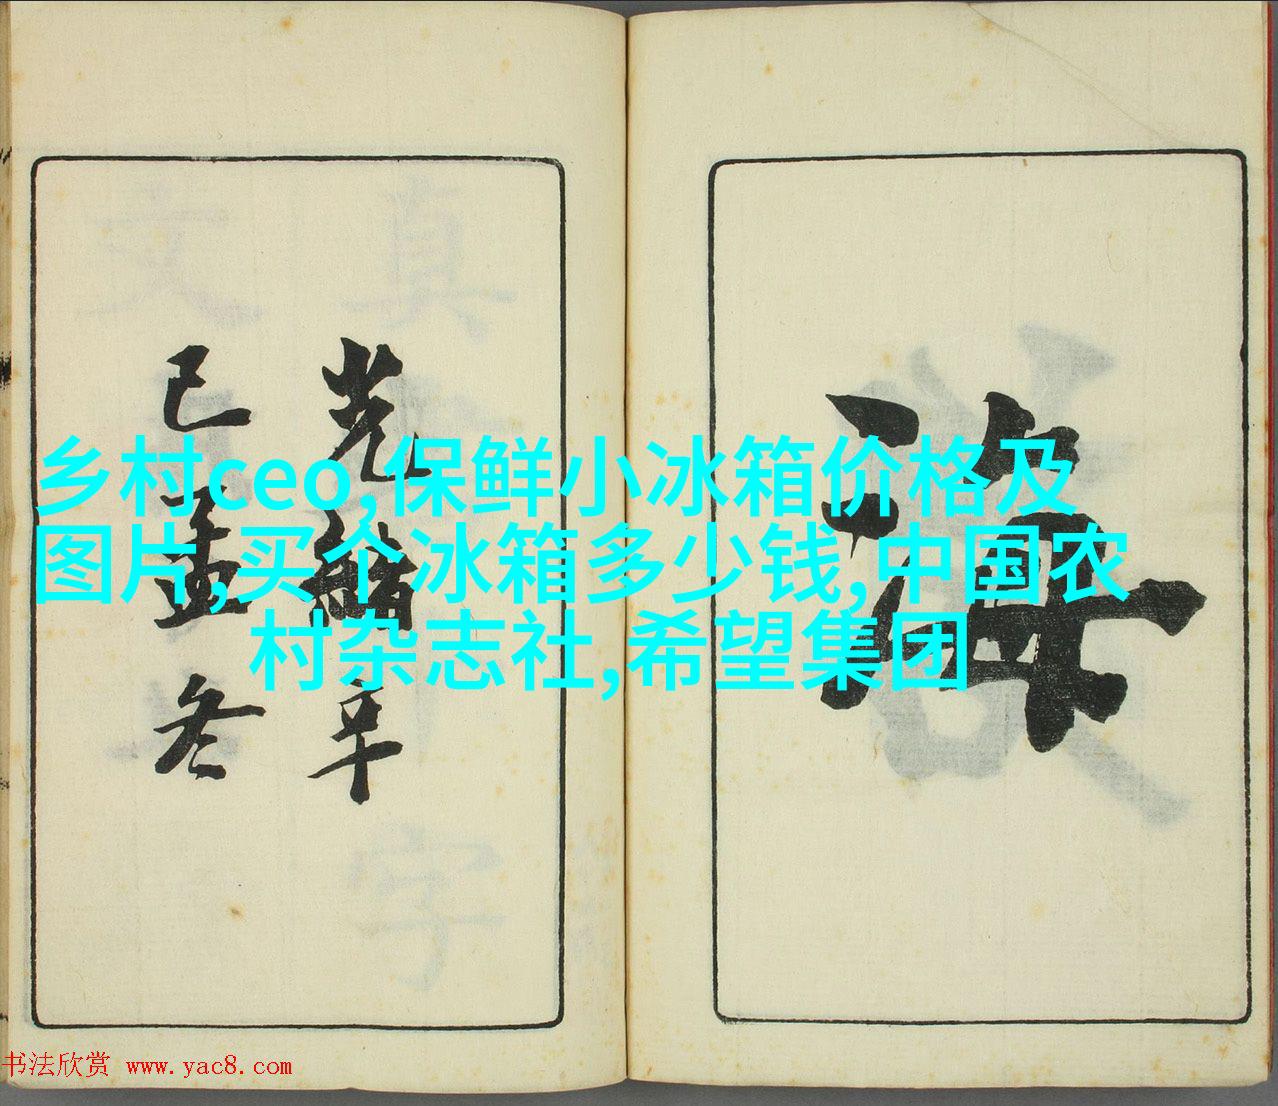 海
光緒辛
巳孟冬
乡村ceo,保鲜小冰箱价格及
图片,买个冰箱多少钱,中国农
村杂志社,希望集团
书法欣赏 www.yac8.com